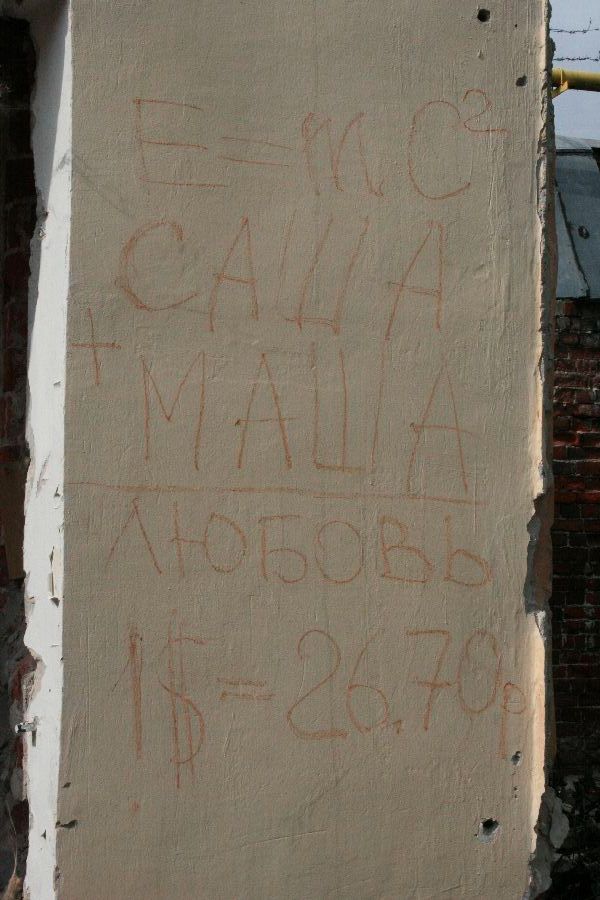 E=mc²
САША
+
МАША
ЛЮБОВЬ
1$=26,70р